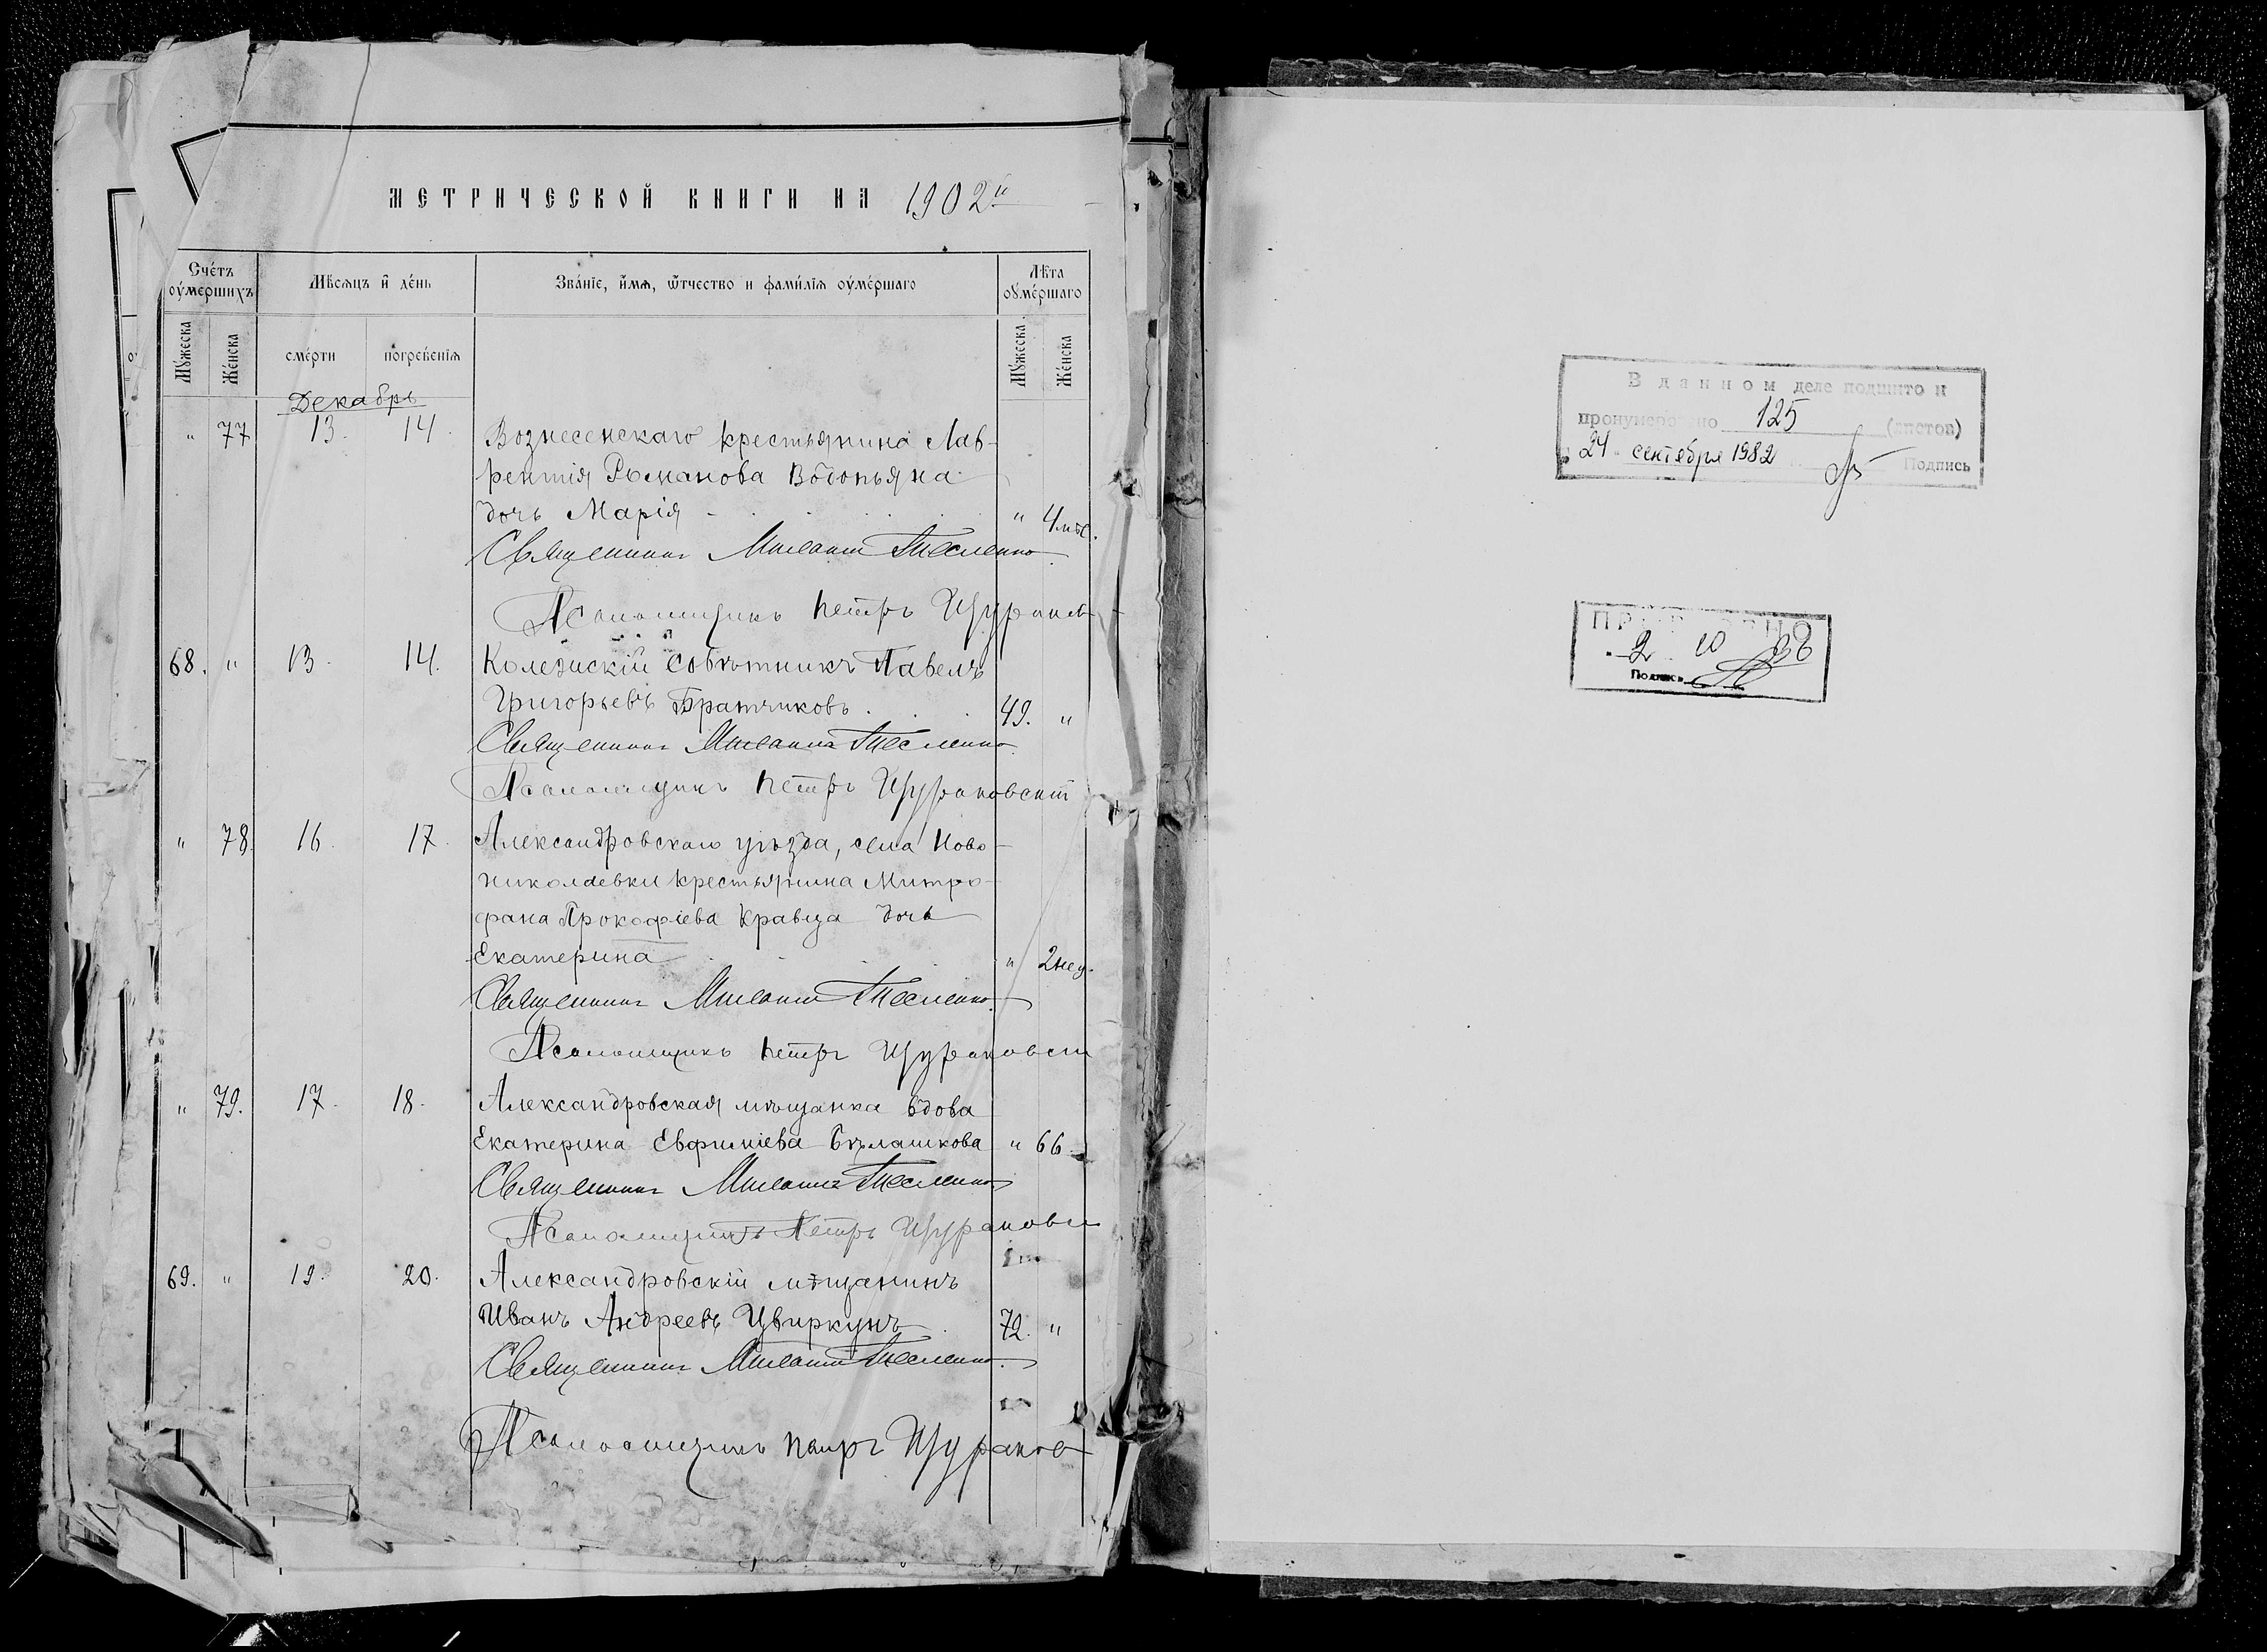 МЕТРИЧЕСКОЙ КНИГИ НА 1902 й
Сче́тъ оу҆ме́ршихъ
Мѣ́сѧцъ и҆ де́нь
Зва́нїе, и҆́мѧ, ѻ҆́тчество и фами́лїѧ оу҆ме́ршаго
Лѣ́та оу҆ме́ршаго
Мꙋ́жеска
Же́нска
сме́рти
погребе́нїѧ
Мꙋ́жеска
Же́нска
Декабрь
" 77 13. 14. Вознесенскаго крестьянина Лав-
рентія Романова Водопьяна
дочь Марія " 4 мѣс.
Священникъ Тесленко
Псаломщикъ Петръ
68. " 13. 14. Колежскій Совѣтникъ Павелъ
Григорьевъ Братчиковъ. 49. "
Священникъ Тесленко
Псаломщикъ Петръ
" 78. 16. 17. Александровскаго уѣзда, села Ново-
николаевки крестьянина Митро-
фана Прокофіева Кравца дочь
Екатерина " 2 нед.
Священникъ Тесленко
Псаломщикъ Петръ
" 79. 17. 18. Александровская мѣщанка вдова
Екатерина Евфиміева Бѣлашкова " 66.
Священникъ Тесленко
Псаломщикъ Петръ
69. " 19. 20. Александровскій мѣщанинъ
Иванъ Андреевъ Цвиркунъ 72. "
Священникъ Тесленко
Псаломщикъ Петръ
В данном деле подшито и
пронумеровано 125 (листов)
"24" сентября 1982 Подпись
ПРОВЕРЕНО
"2" 10
Подпись